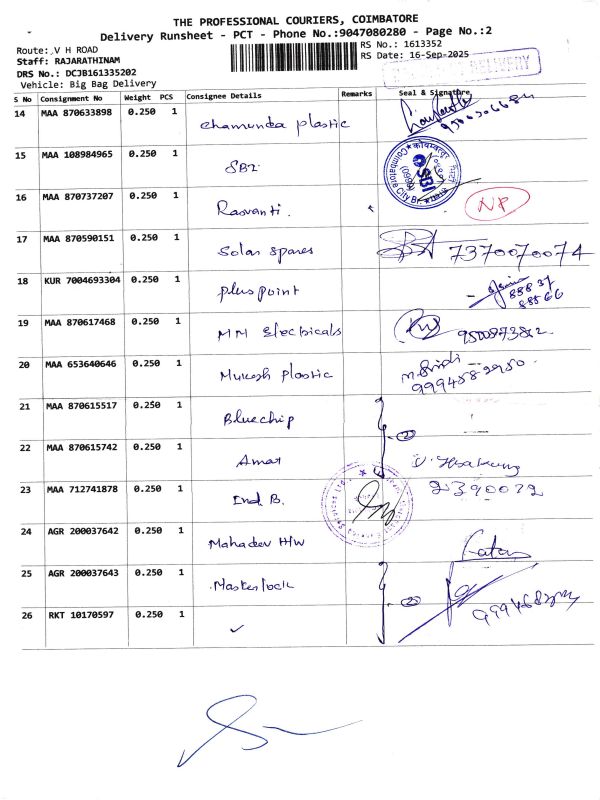 THE PROFESSIONAL COURIERS, COIMBATORE
Delivery Runsheet - PCT - Phone No.:9047080280 - Page No.:2
Route: V H ROAD
RS No.: 1613352
Staff: RAJARATHINAM
RS Date: 16-Sep-2025
DRS No.: DCJB161335202
DELIVERY
Vehicle: Big Bag Delivery
S No Consignment No Weight PCS Consignee Details Remarks Seal & Signature
14 MAA 870633898 0.250 1 Chamunda plastic
15 MAA 108984965 0.250 1 SBI SBI
16 MAA 870737207 0.250 1 Rasvanti. NP
17 MAA 870590151 0.250 1 Solar Spares 7370070074
18 KUR 7004693304 0.250 1 plus point 88837 88566
19 MAA 870617468 0.250 1 MM Electricals
20 MAA 653640646 0.250 1 Mukesh plastic
21 MAA 870615517 0.250 1 Bluechip
22 MAA 870615742 0.250 1 Amar 2
23 MAA 712741878 0.250 1 Ind B. 2390072
24 AGR 200037642 0.250 1 Mahadev H/W
25 AGR 200037643 0.250 1 Masterlock 2
26 RKT 10170597 0.250 1 ✓